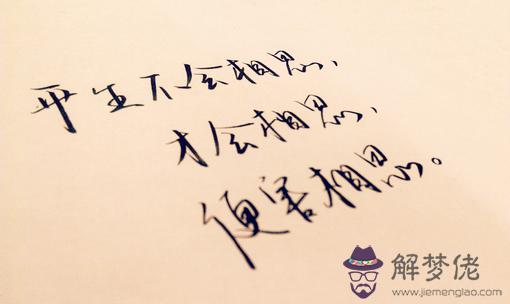 平生不会相思、
才会相思、
便害相思。
解梦佬
www.jiemenglao.com